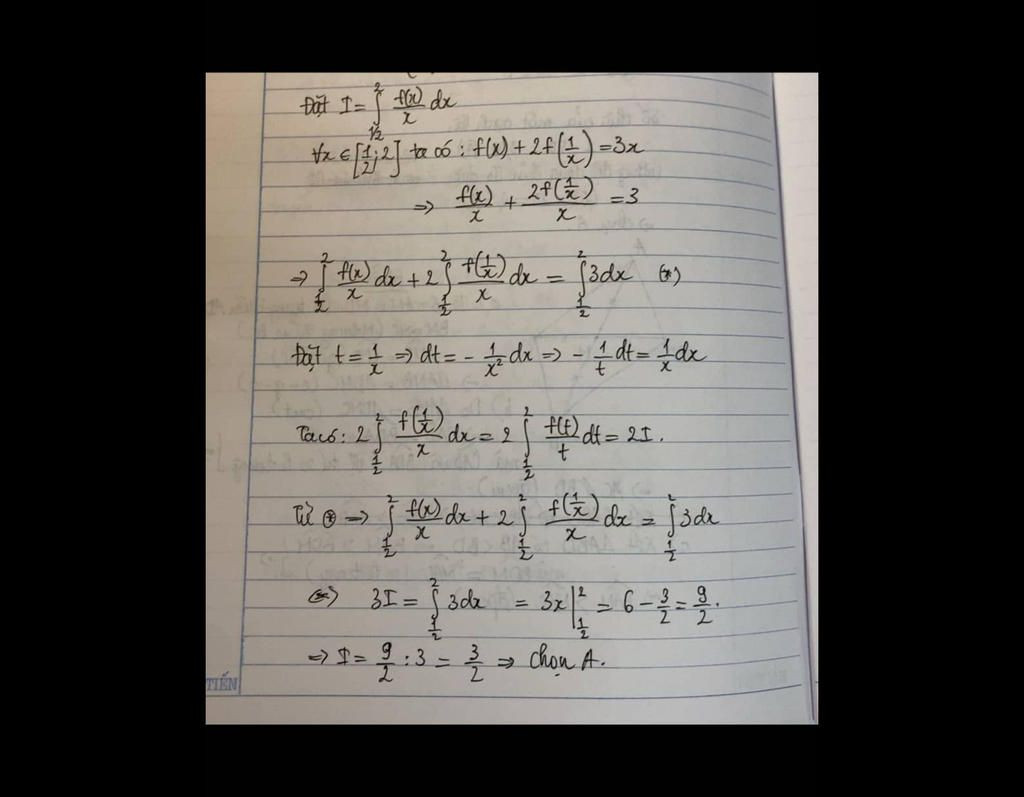 Đặt I = ∫_{1/2}^{2} f(x)/x dx
∀x ∈ [1/2; 2] ta có : f(x) + 2f(1/x) = 3x
=> f(x)/x + 2f(1/x)/x = 3
=> ∫_{1/2}^{2} f(x)/x dx + 2 ∫_{1/2}^{2} f(1/x)/x dx = ∫_{1/2}^{2} 3dx (*)
Đặt t = 1/x => dt = - 1/x² dx => - 1/t dt = 1/x dx
Ta có : 2 ∫_{1/2}^{2} f(1/x)/x dx = 2 ∫_{1/2}^{2} f(t)/t dt = 2I .
Từ (*) => ∫_{1/2}^{2} f(x)/x dx + 2 ∫_{1/2}^{2} f(1/x)/x dx = ∫_{1/2}^{2} 3dx
<=> 3I = ∫_{1/2}^{2} 3dx = 3x |_{1/2}^{2} = 6 - 3/2 = 9/2 .
=> I = 9/2 : 3 = 3/2 => chọn A.
TIẾN